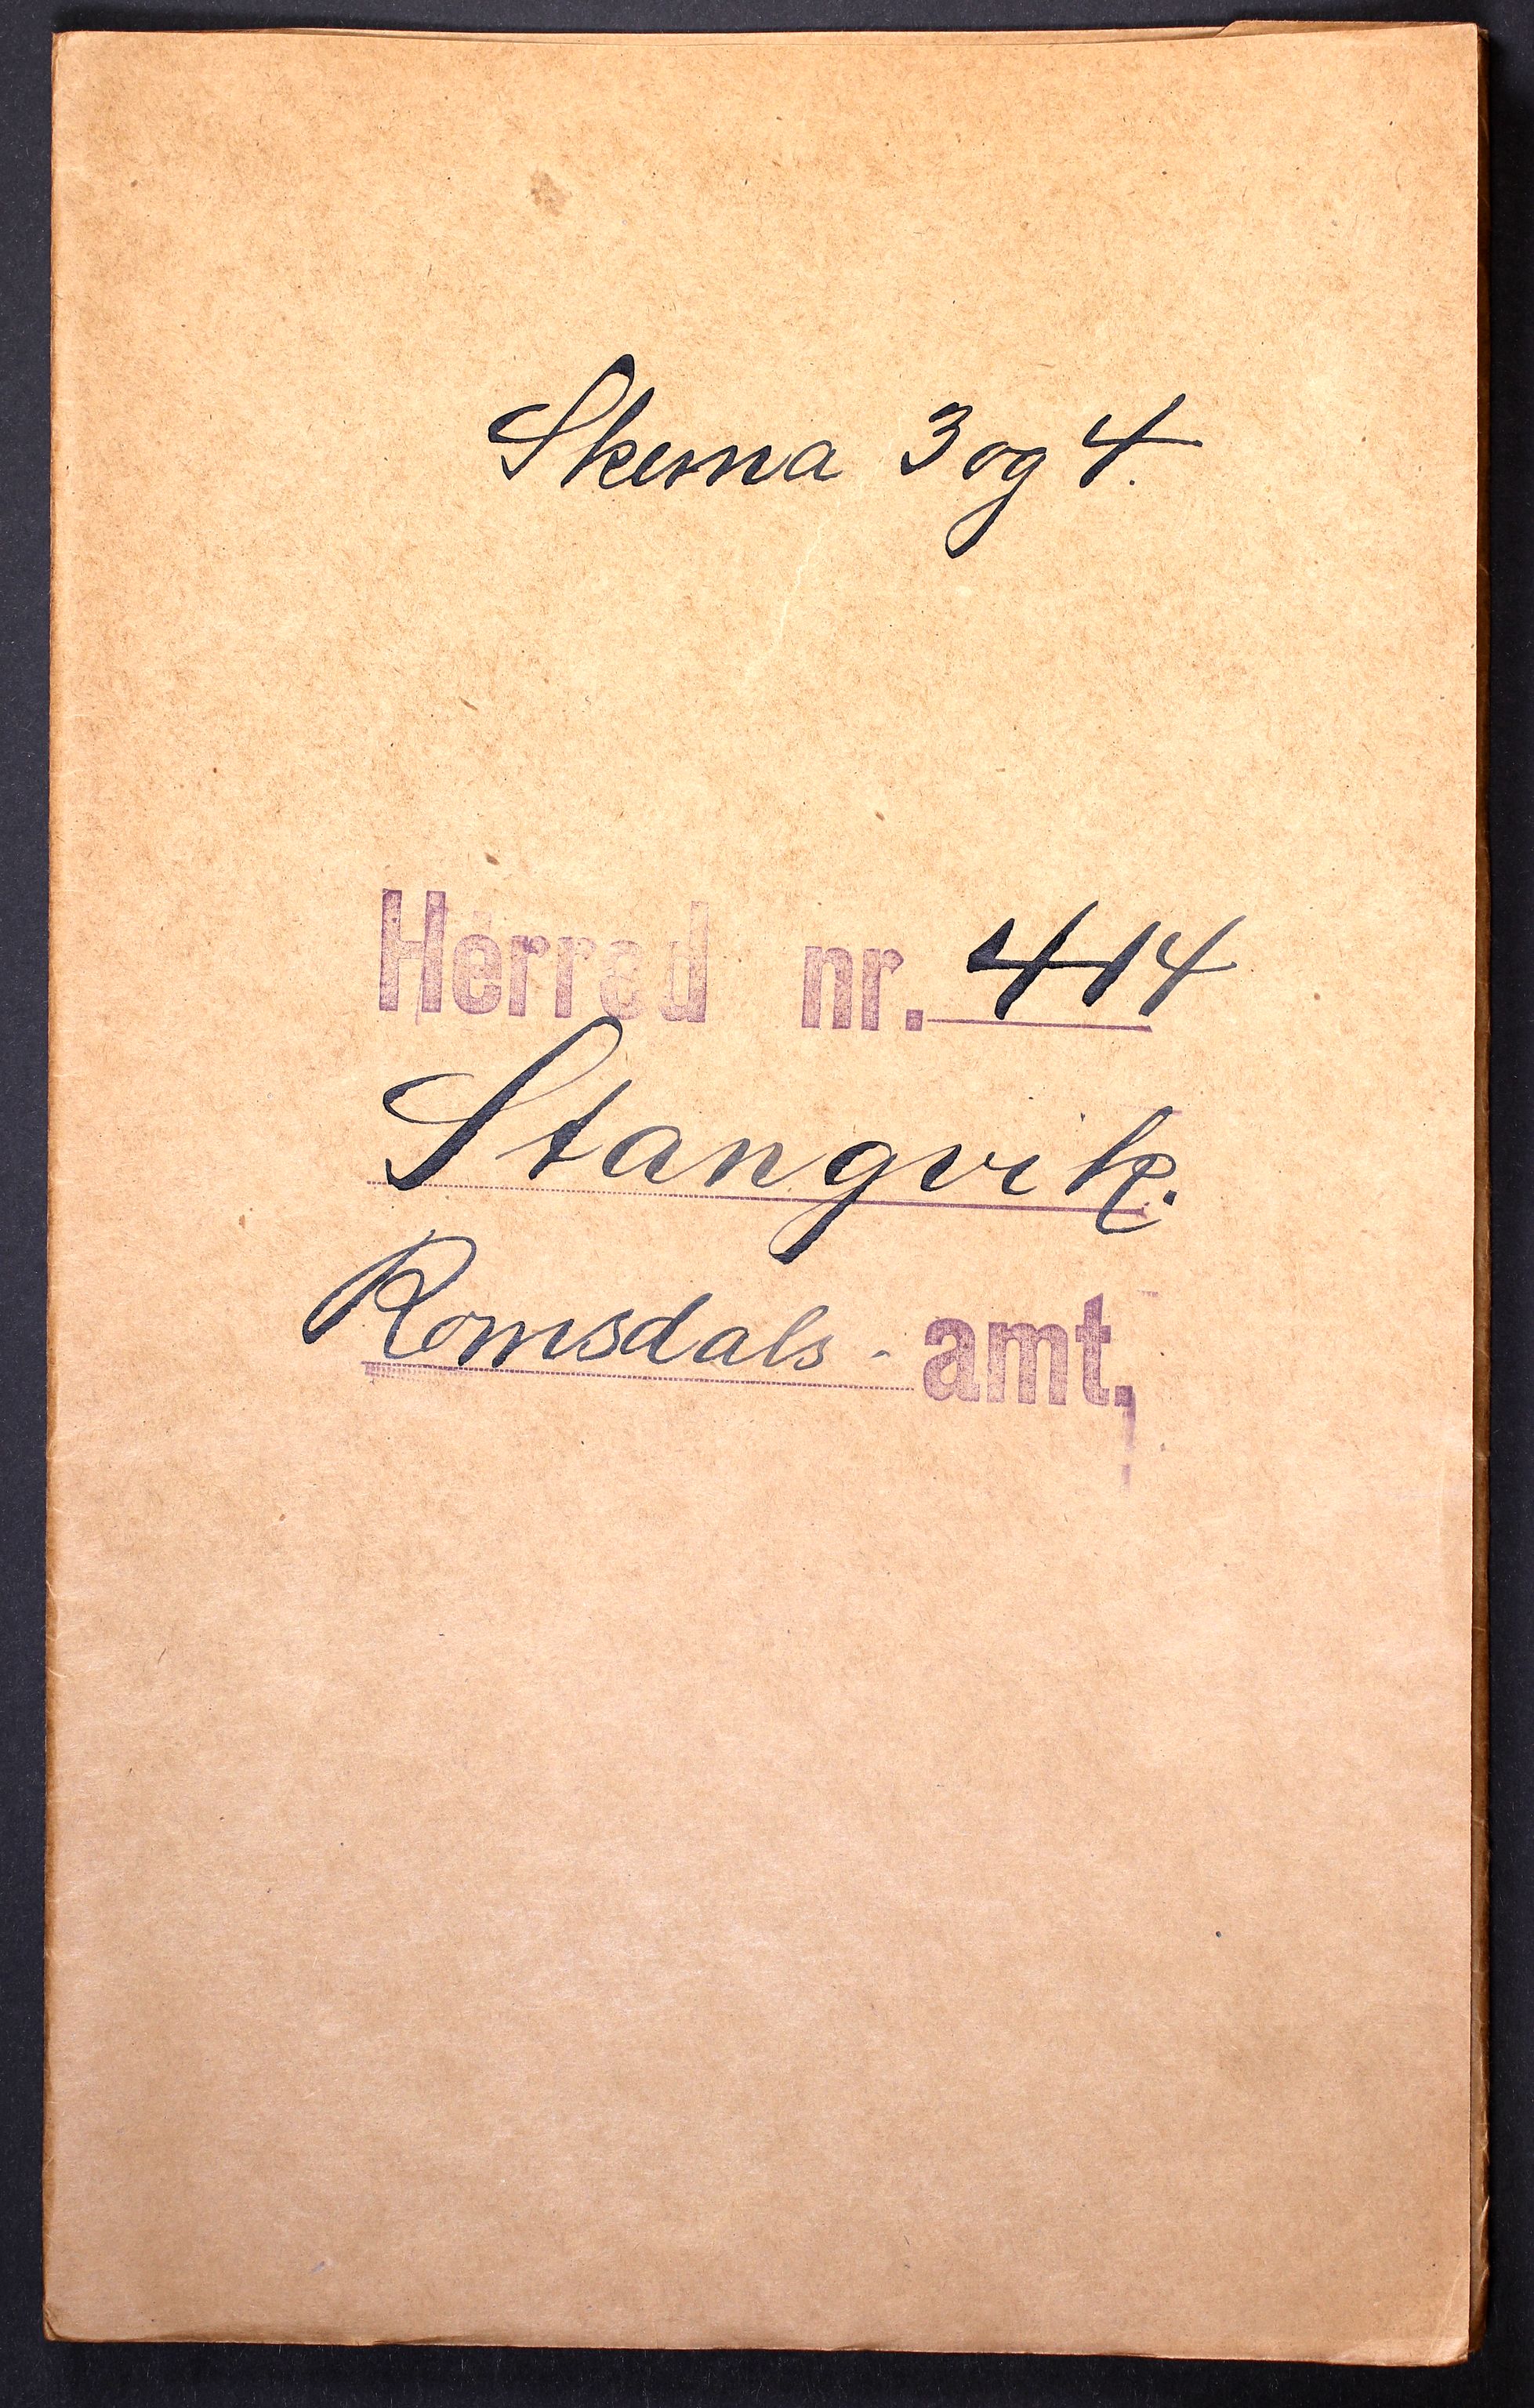 Skema 3 og 4.
Herred nr. 414
Stangvik.
Romsdals - amt.